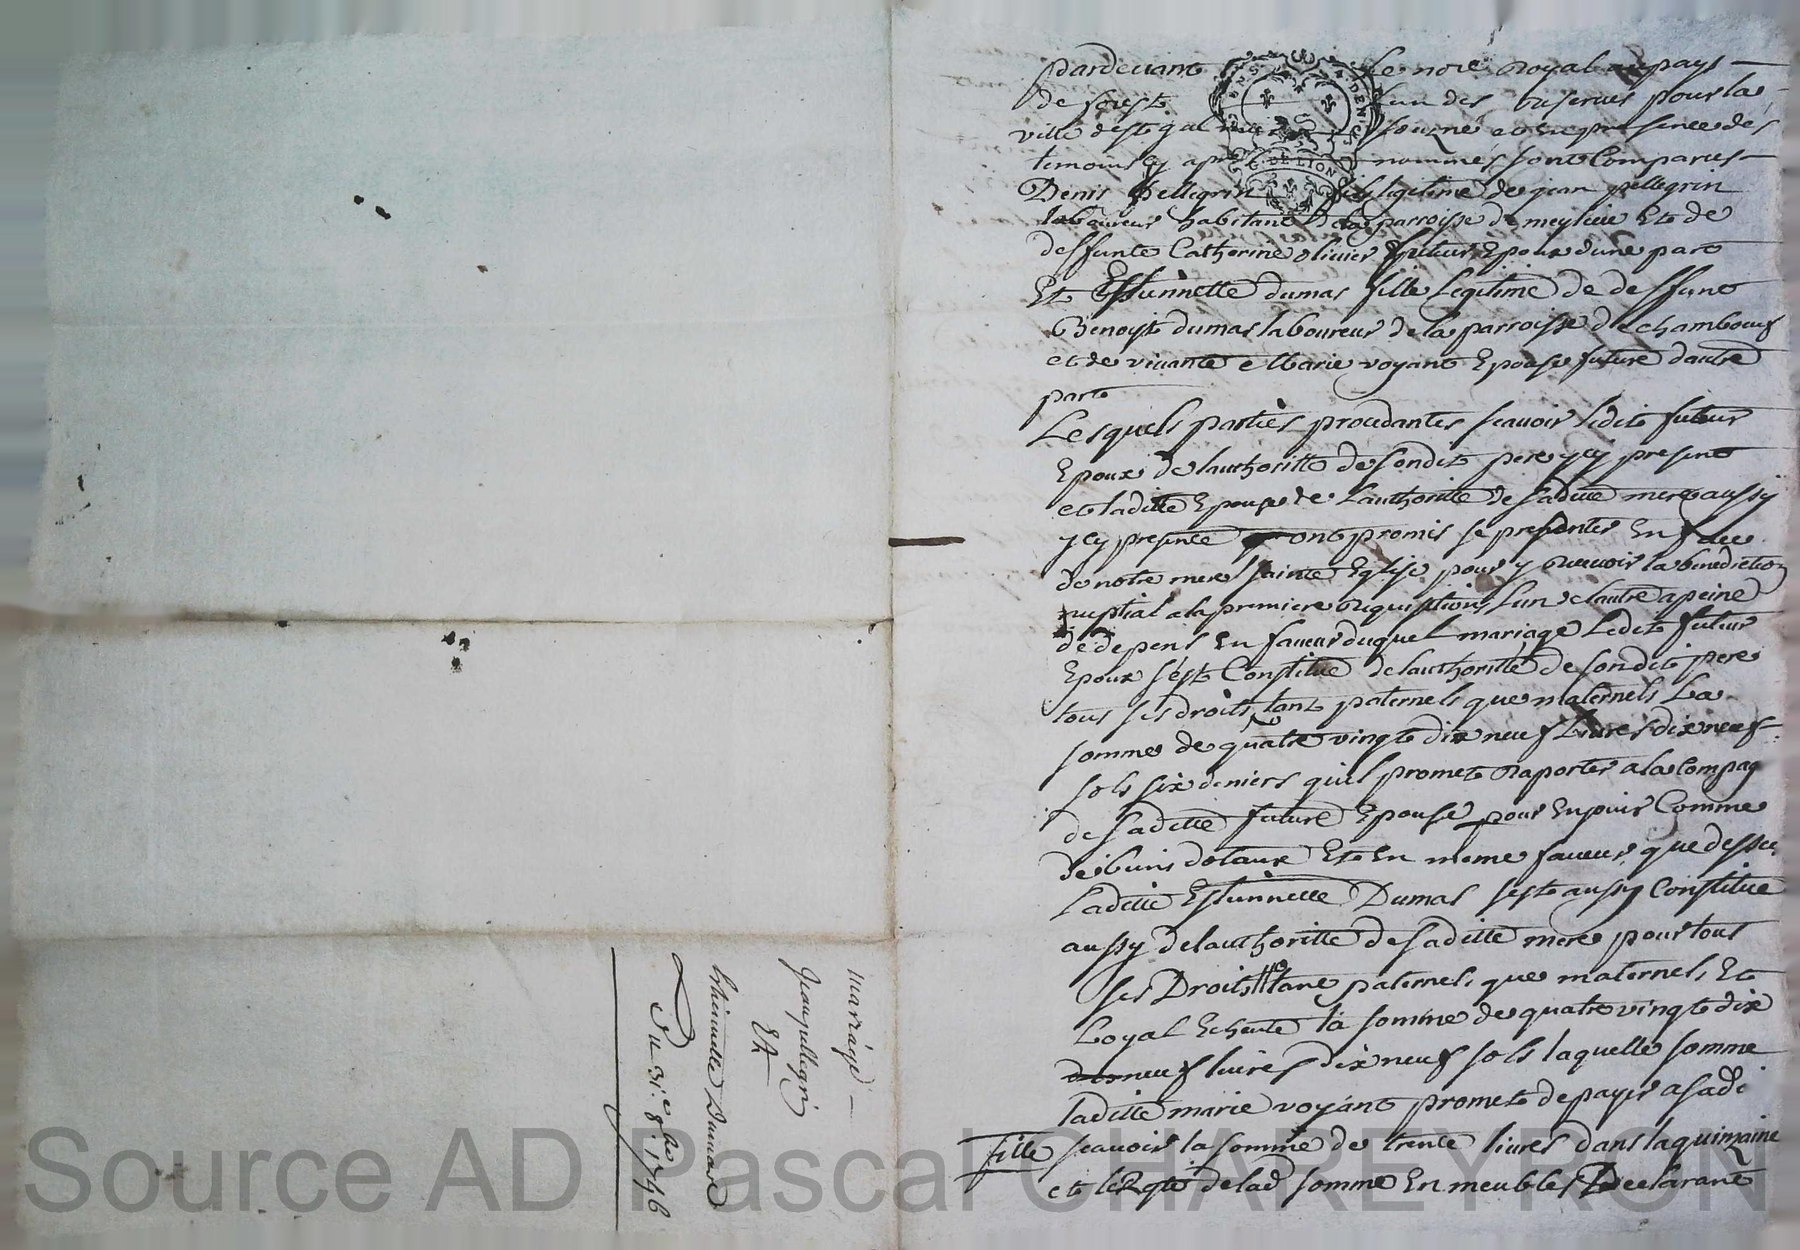 mariage
Jean pellegrin
Et
Estiennette Dumas
Du 31.e 8.bre 1746
pardevant le nore Royal au pays
de forest lun des reserves pour la
ville de st galmier soigné et en presence des
temoins cy apres nommés sont Comparus
Denis Pellegrin fils legitime de jean pellegrin
laboureur habitant de la parroisse de meylieu Et de
deffunte Catherine olivier futur Epoux dune part
Et Estiennette dumas fille Legitime de deffunt
Benoyst dumas laboureur de la parroisse de chambœuf
et de vivante Marie voyant Epouse future dautre
part
Lesquels parties procedantes scavoir ledit futur
Epoux de lauthoritté de sondit pere ycy present
et laditte Epouse de Lauthoritté de saditte mere aussy
ycy presente ont promis se presenter En face
de notre mere sainte Eglise pour y recevoir la benediction
nuptial a la premiere requisition Lun et lautre a peine
de depens En faveur duquel mariage Ledit futur
Epoux sest Constitué de lauthoritté de sondit pere
tous ses droits tant paternels que maternels La
somme de quatre vingt dix neuf Livres dix neuf
sols six deniers quil promet raporter a la Compag
de saditte future Epouse pour En jouir Comme
de biens dotaux Et En meme faveur que dessus
Laditte Estiennette Dumas sest aussy Constitué
aussy de lauthoritté de saditte mere pour tous
ses Droits tant paternels que maternels Et
Loyal Echeute la somme de quatre vingt dix
neuf livres dix neuf sols laquelle somme
laditte marie voyant promet de payer a sadi
fille scavoir la somme de trente livres dans laquinzaine
et le Rgte de lad somme En meubles Declarant
Source AD Pascal CHAREYRON
DE LYON